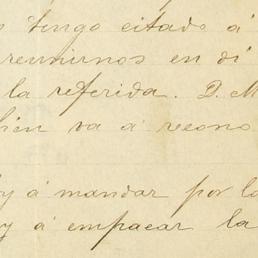 tengo citado á
reunirnos en di
la referida. D. M
bien va á recono
y á mandar por lo
y á empacar la